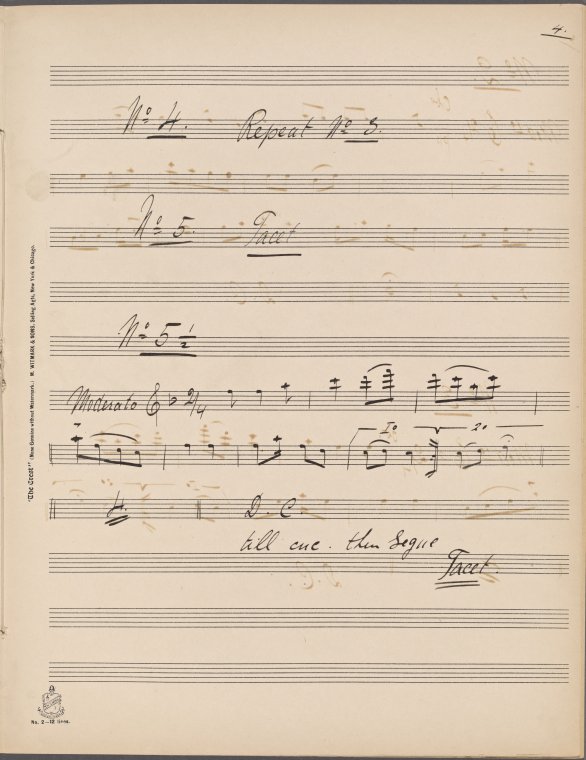 4.
No 4. Repeat No 3.
No 5. Tacet
No 5 1/2
Moderato E♭ 2/4
1o 2o
4. D. C.
till cue. then Segue
Tacet.
"The Crest" (None Genuine without Watermark.) M. WITMARK & SONS, Selling Agts, New York & Chicago.
No. 2—12 lines.